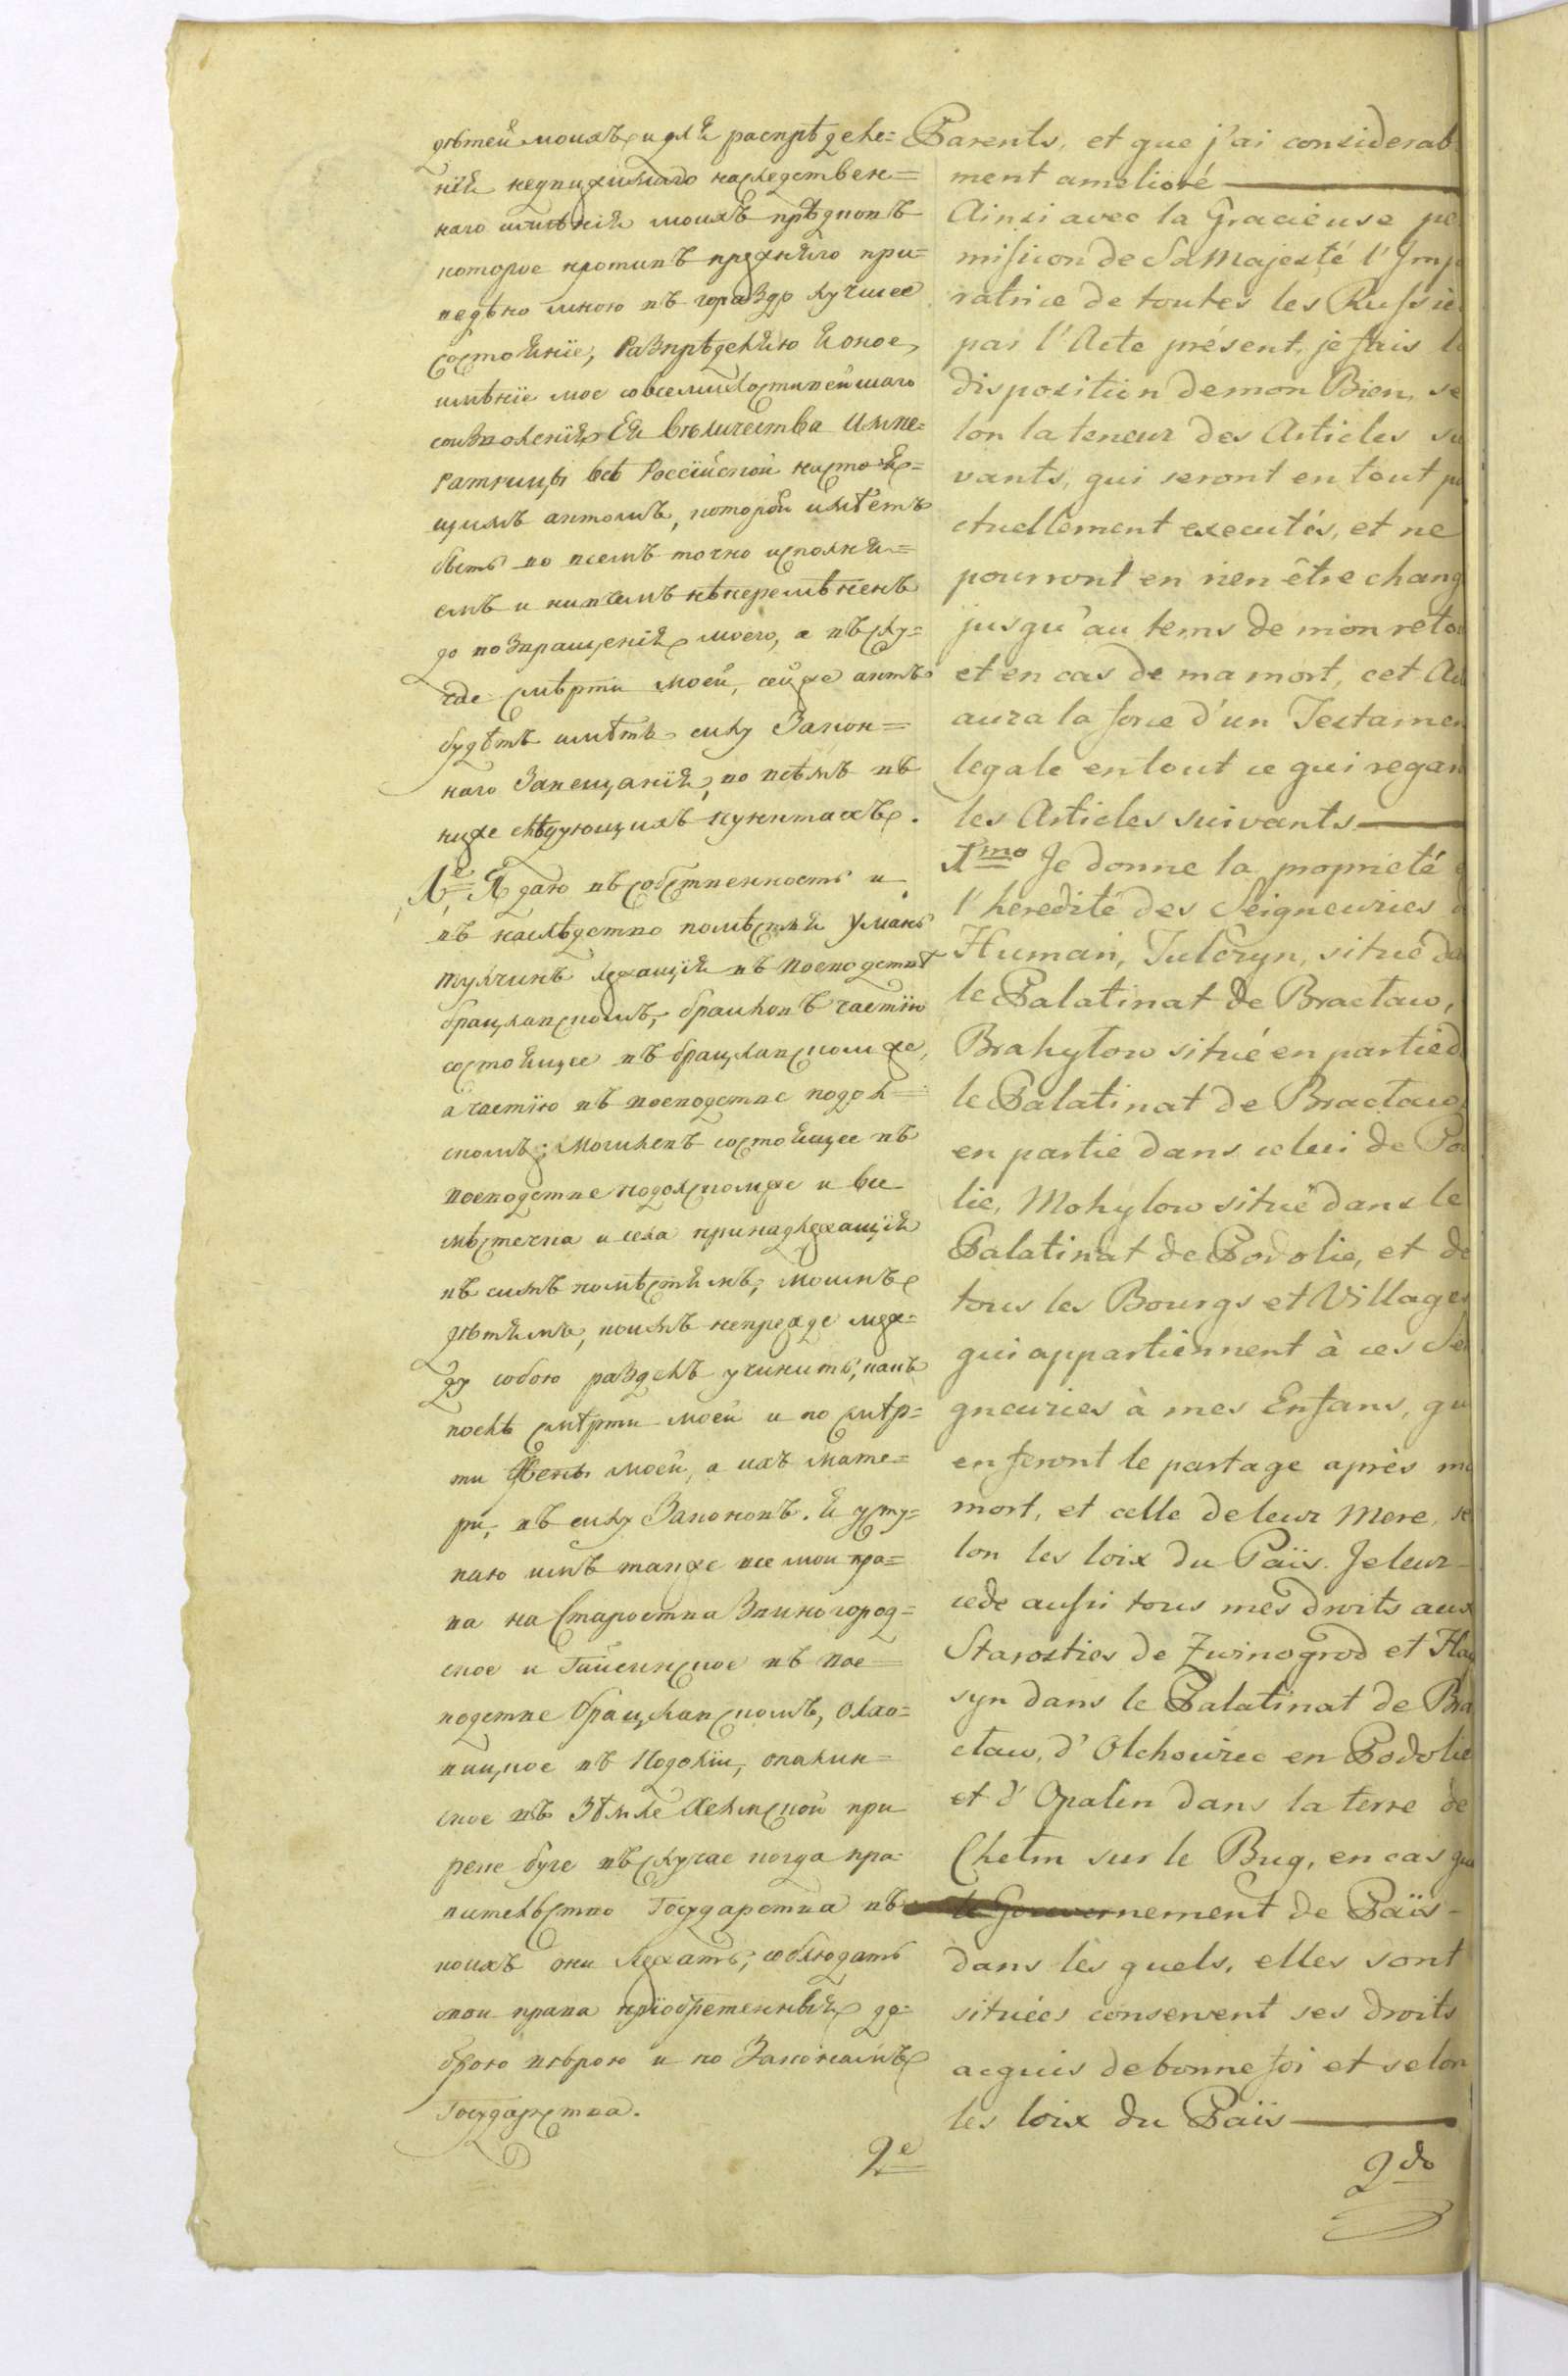 дѣтей моихъ, и для распредѣле=
нія недвижимаго наследствен=
наго имѣнія моихъ прѣдковъ
которое противъ прежняго при=
ведѣно мною въ гораздо лучшее
состояніе, Разпрѣделяю я оное
имѣніе мое совсемилостивейшаго
соизволенія Ея Вѣличества Импе=
ратрицы всѣ Россійской настоя=
щимъ актомъ, которой имѣетъ
быть во всемъ точно исполня=
емъ и ничемъ нѣперемѣненъ
до возвращенія моего, а въ слу=
чае смѣрти моей, сей же актъ
будѣтъ имѣть силу Закон=
наго Завещанія, во всѣмъ въ
ниже слѣдующихъ пунктахъ.
1е Я даю въ собственность и
въ наслѣдство помѣстья Умань
тулчинъ лежащія въ воеводствѣ
брацлавскомъ, браиловъ частію
состоящее въ брацлавскомже,
а частію въ воеводстве подол=
скомъ; Могилевъ состоящее въ
воеводстве подолскомже и все
мѣстечка и села принадлежащія
къ симъ помѣстьямъ, моимъ
дѣтямъ, коимъ непрежде меж=
ду собою разделъ учинить, какъ
послѣ смѣрти моей и по смѣр=
ти Жены моей, а ихъ мате=
ри, въ силу Законовъ. Я усту=
паю имъ также все мои пра=
ва на Староства Звиногород=
ское и Гайсинское въ вое=
водстве брацлавскомъ, Олхо=
вицкое въ Подоліи, опалин=
ское въ Зѣмле Хелмской при
реке буге въ случае когда пра=
вителство Государства въ
коихъ они лежатъ, соблюдать
мои права пріобретенныя до=
брою вѣрою и по Законамъ
Государства.
2е
Parents, et que j'ai considerab
ment amelioré
Ainsi avec la Gracieuse pe
mission de Sa Majesté l'Imp
ratrice de toutes les Russie
par l'Acte présent, je fais l
disposition de mon Bien, se
lon la teneur des Articles su
vants, qui seront en tout p
ctuellement executés, et ne
pourront en rien être chang
jusqu'au tems de mon reto
et en cas de ma mort, cet Ac
aura la force d'un Testamen
legale en tout ce qui regar
les Articles suivants
1mo Je donne la proprieté
l'heredité des Seigneuries
Human, Tulczyn, situé da
le Palatinat de Bractaw,
Brahylow situé en partie d
le Palatinat de Bractaw
en partie dans celui de Po
lie, Mohylow situé dans le
Palatinat de Podolie, et de
tous les Bourgs et Villages
qui appartiennent à ces Sei
gneuries à mes Enfans, qu
en feront le partage après m
mort, et celle de leur Mere, se
lon les loix du Païs. Je leur
cede aussi tous mes droits aux
Starosties de Zwinogrod et Hay
syn dans le Palatinat de Bra
ctaw, d'Olchowiec en Podolie
et d'Opalin dans la terre de
Chelm sur le Bug, en cas que
le Gouvernement de Païs
dans les quels, elles sont
situées conservent ses droits
acquis de bonne foi et selon
les loix du Païs
2do